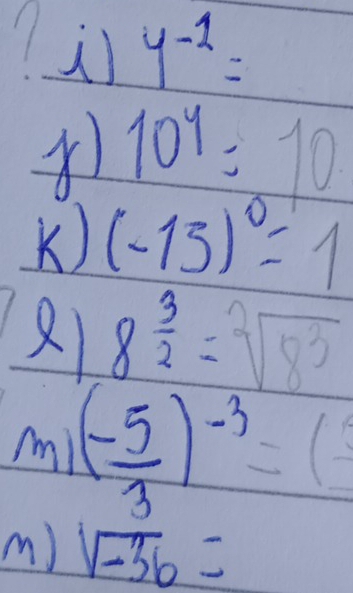 ? i) 4⁻¹ =
j) 10⁴ = 10
k) (-15)⁰ = 1
l) 8^(3/2) = ²√8³
m) (-5/3)⁻³ = (
n) √-36 =